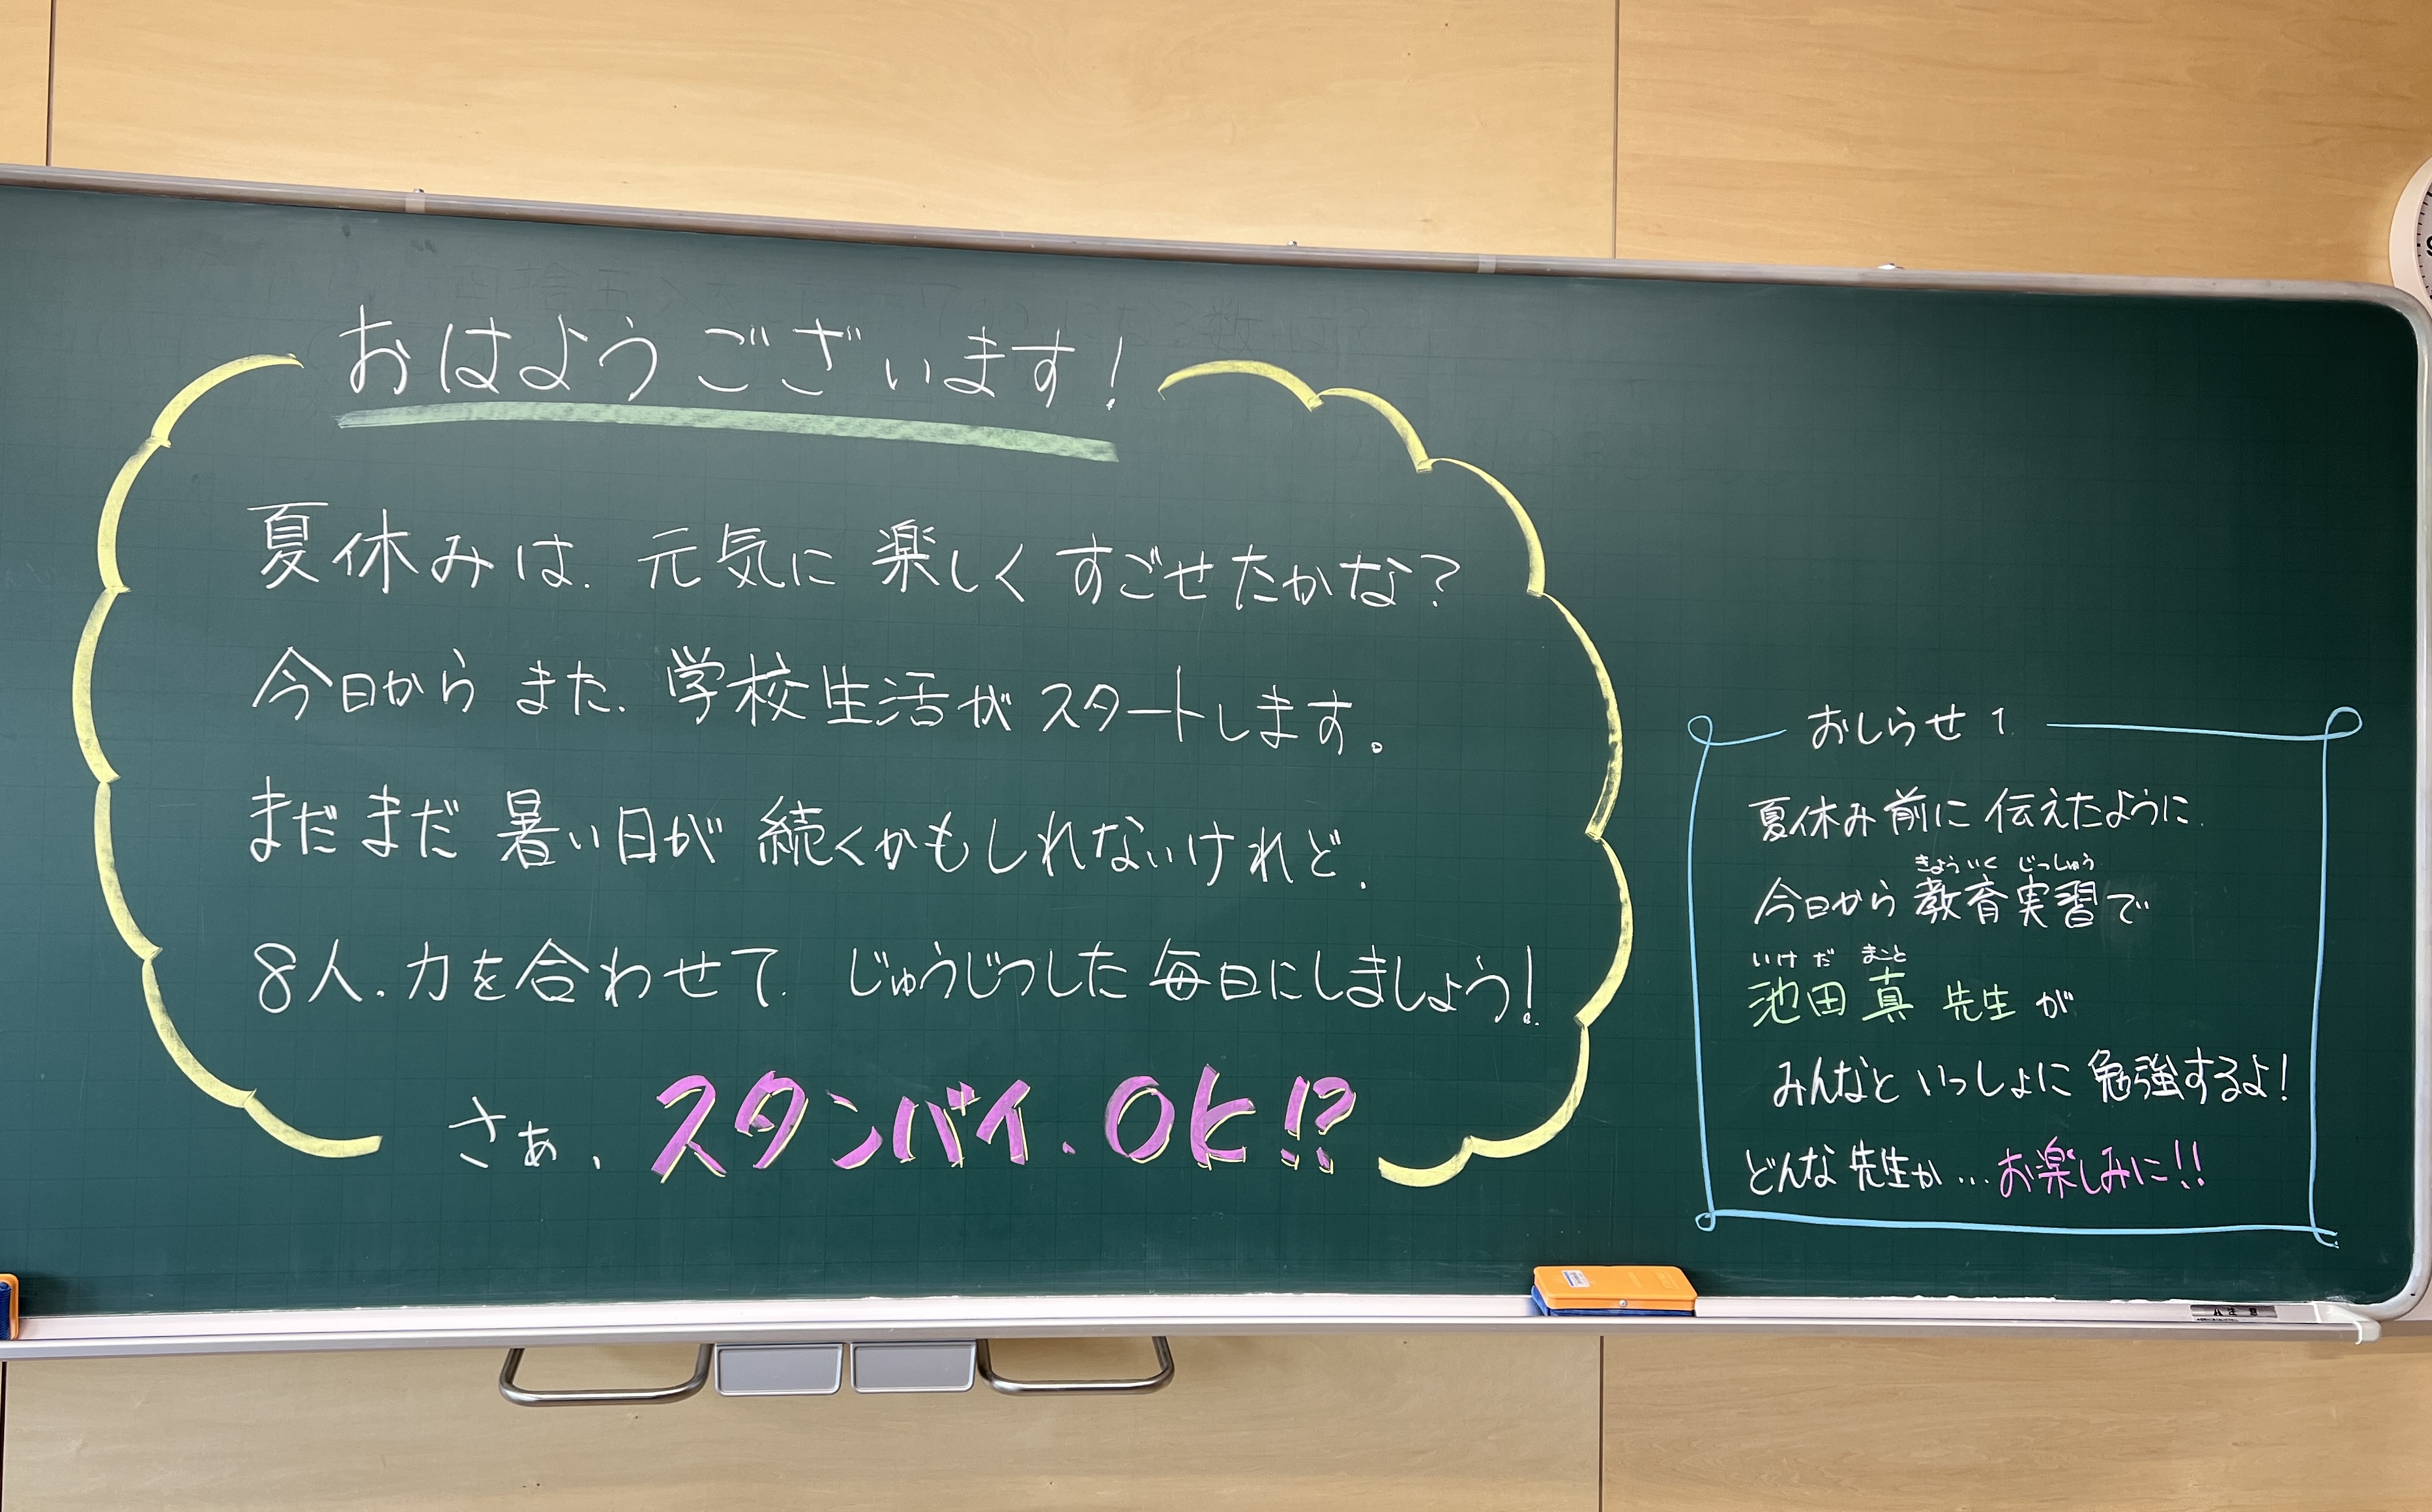 おはようございます！
夏休みは、元気に楽しくすごせたかな？
今日からまた、学校生活がスタートします。
まだまだ暑い日が続くかもしれないけれど、
8人、力を合わせて、じゅうじつした毎日にしましょう！
さぁ、スタンバイ、OK!?
おしらせ1
夏休み前に伝えたように、
きょういく じっしゅう
今日から教育実習で
いけだ まこと
池田 真 先生が
みんなといっしょに勉強するよ！
どんな先生か…お楽しみに!!